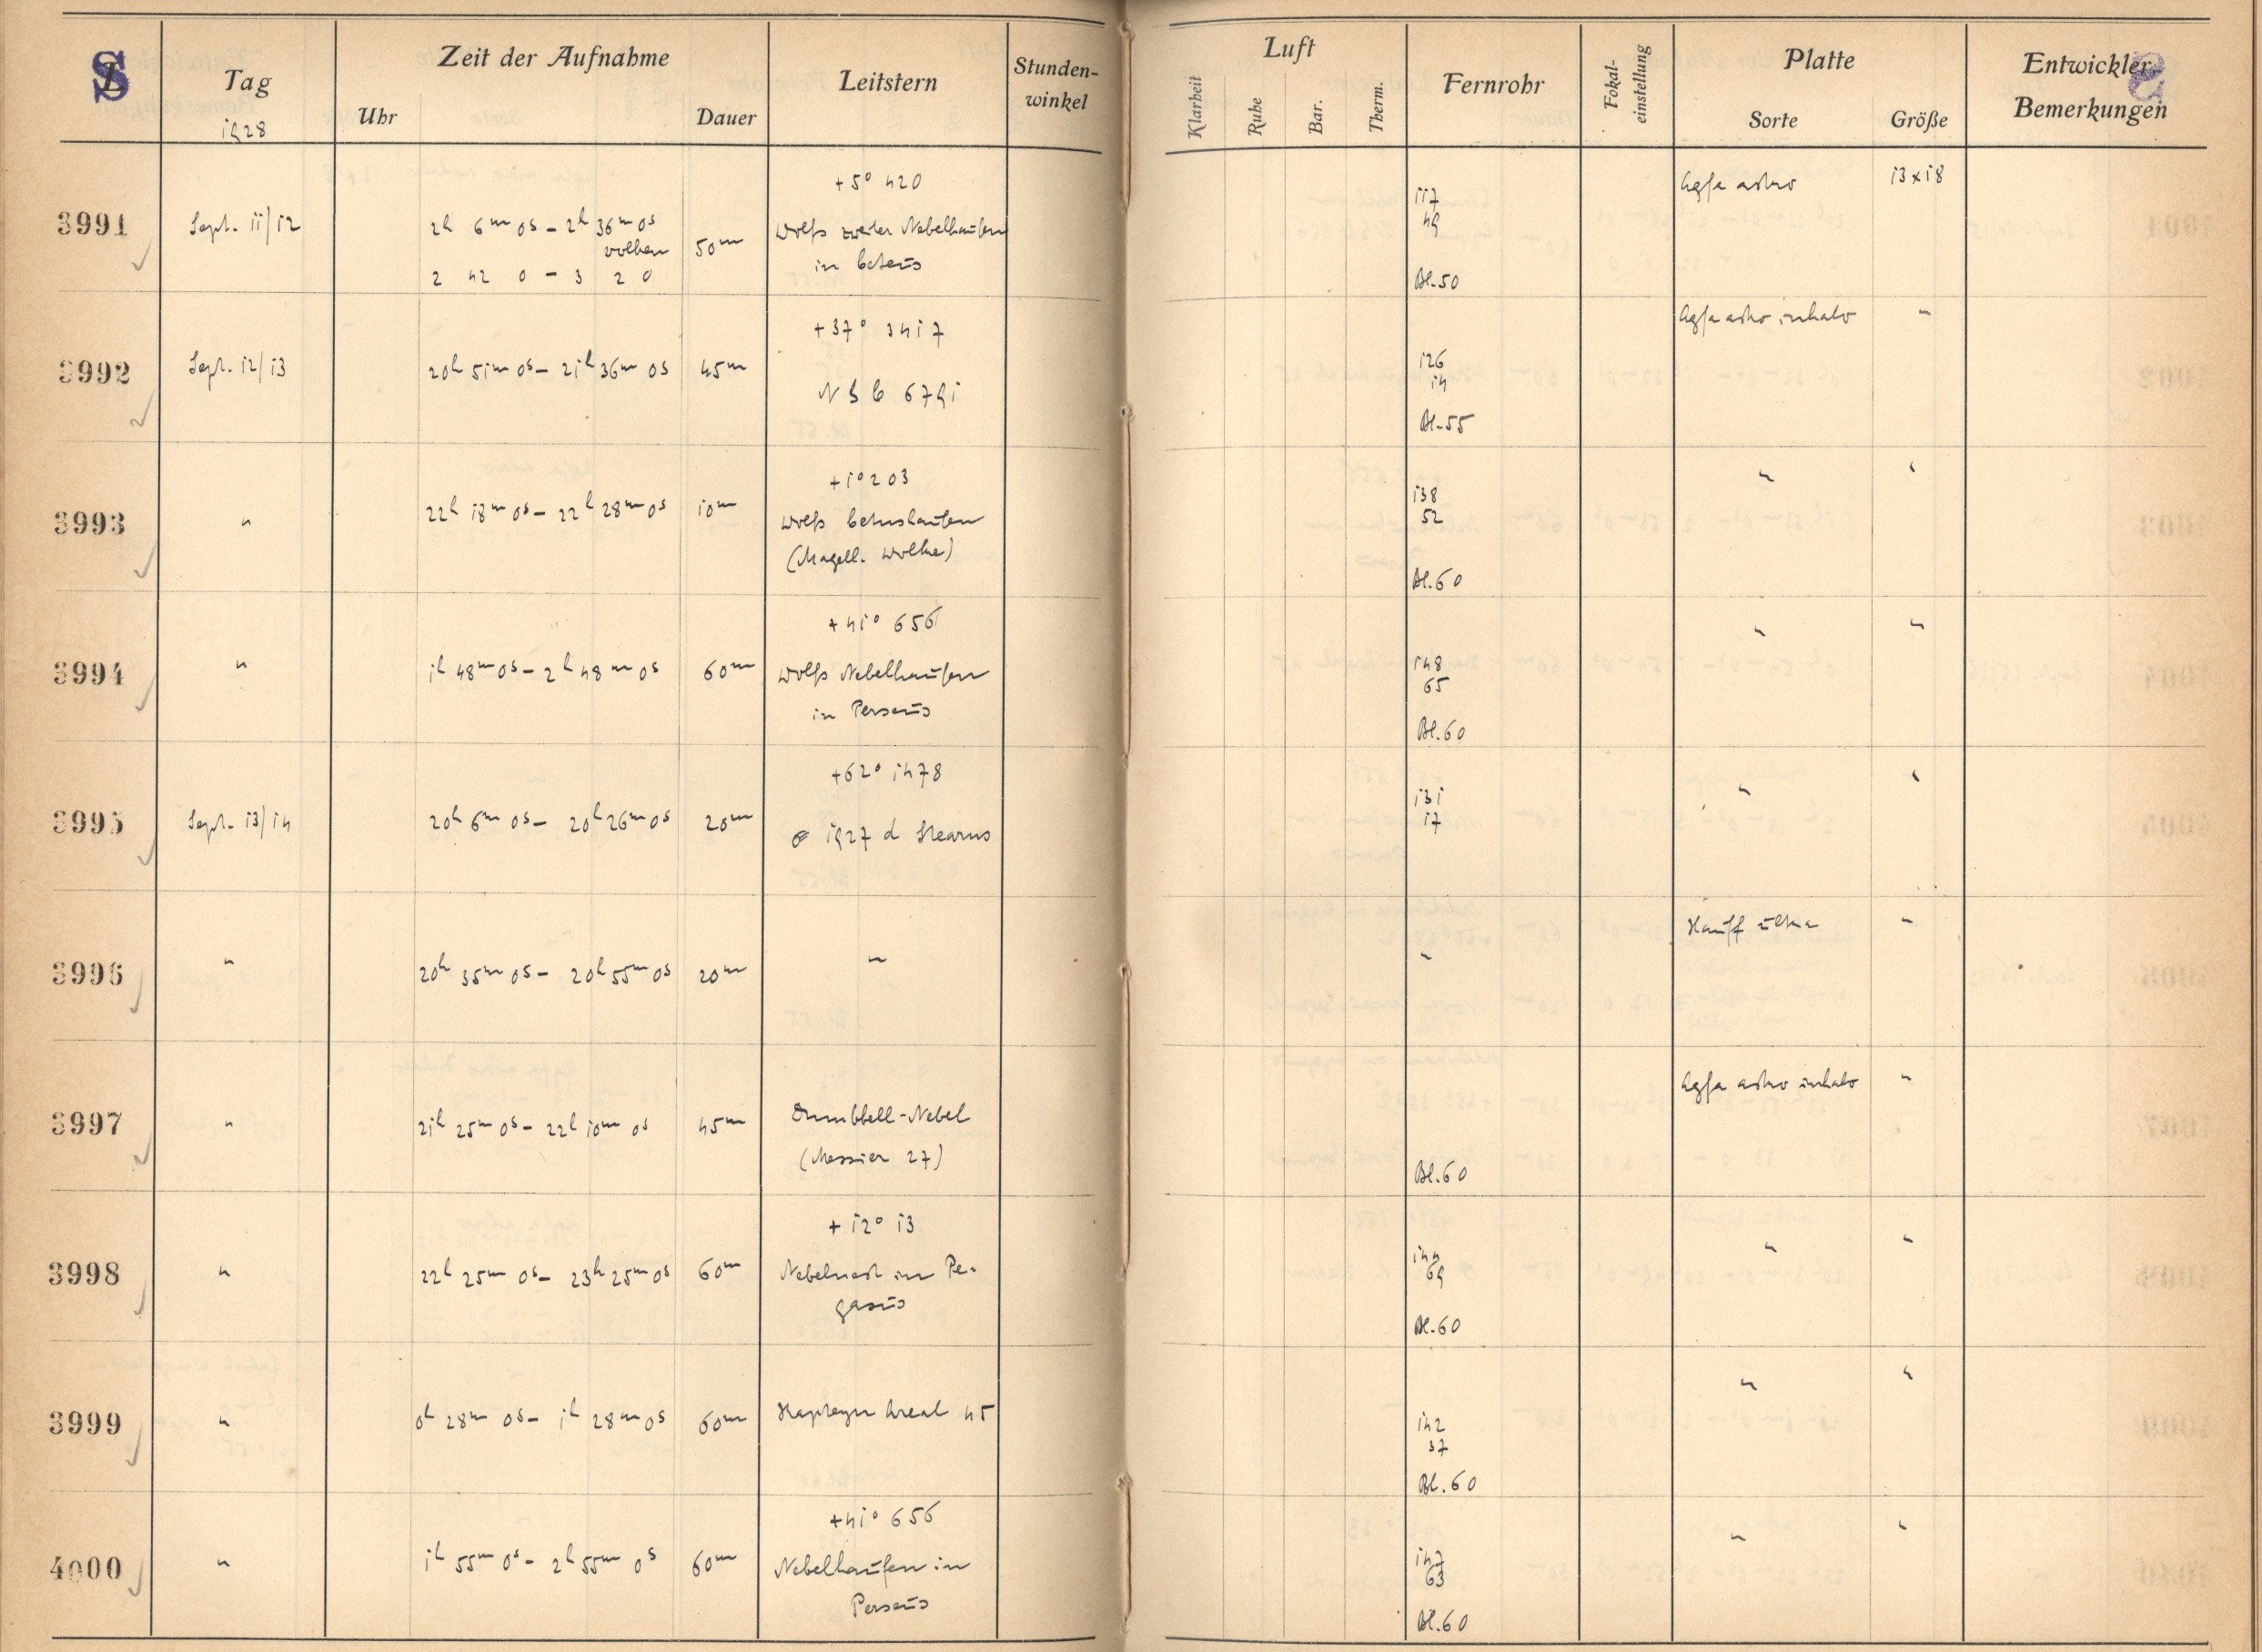 S
Tag
1928
Zeit der Aufnahme
Uhr
Dauer
Leitstern
Stunden-
winkel
Luft
Klarheit
Ruhe
Bar.
Therm.
Fernrohr
Fokal-
einstellung
Platte
Sorte
Größe
Entwickler
Bemerkungen
3991 Sept. 11/12
2h 6m 0s – 2h 36m 0s
Wolken
2 42 0 – 3 2 0
50m
+5° 420
Wolfs zweiter Nebelhaufen
in Cetus
117
49
Bl. 50
Agfa astro 13x18
3992 Sept. 12/13
20h 51m 0s – 21h 36m 0s 45m
+37° 3417
N G C 6791
126
14
Bl. 55
Agfa astro inhalo "
3993 "
22h 18m 0s – 22h 28m 0s 10m
+1° 203
Wolfs Cetushaufen
(Magell. Wolke)
138
52
Bl. 60
" "
3994 "
1h 48m 0s – 2h 48m 0s 60m
+41° 656
Wolfs Nebelhaufen
in Perseus
148
65
Bl. 60
" "
3995 Sept. 13/14
20h 6m 0s – 20h 26m 0s 20m
+62° 1478
1927 d Stearns
131
17
" "
3996 "
20h 35m 0s – 20h 55m 0s 20m
"
"
Hauff ultra "
3997 "
21h 25m 0s – 22h 10m 0s 45m
Dumbbell-Nebel
(Messier 27)
Bl. 60
Agfa astro inhalo "
3998 "
22h 25m 0s – 23h 25m 0s 60m
+12° 13
Nebelnest im Pe-
gasus
144
69
Bl. 60
" "
3999 "
0h 28m 0s – 1h 28m 0s 60m
Kapteyn Areal 45
142
37
Bl. 60
" "
4000 "
1h 55m 0s – 2h 55m 0s 60m
+41° 656
Nebelhaufen in
Perseus
147
63
Bl. 60
" "